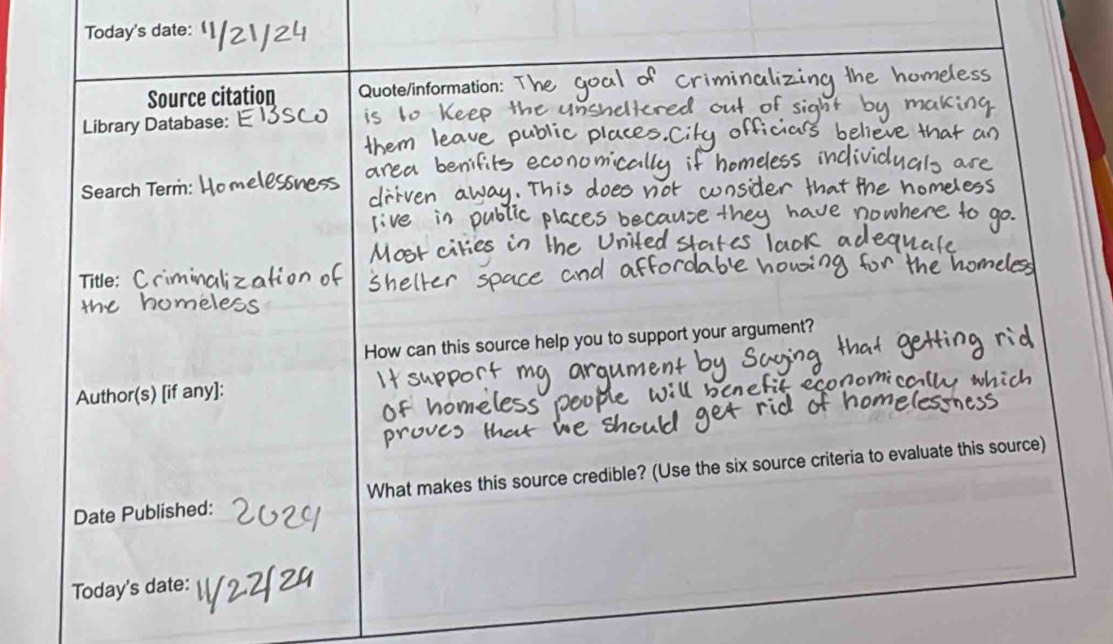 Today's date: 11/21/24
Source citation
Library Database: EBSCO
Search Term: Homelessness
Title: Criminalization of
the homeless
Author(s) [if any]:
Date Published: 2024
Today's date: 11/22/24
Quote/information: The goal of criminalizing the homeless
is to Keep the unsheltered out of sight by making
them leave public places. City officials believe that an
area benifits economically if homeless individuals are
driven away. This does not consider that the homeless
live in public places because they have nowhere to go.
Most cities in the United states lack adequate
shelter space and affordable housing for the homeless
How can this source help you to support your argument?
It support my argument by Saying that getting rid
of homeless people will benefit economically which
proves that we should get rid of homelessness
What makes this source credible? (Use the six source criteria to evaluate this source)